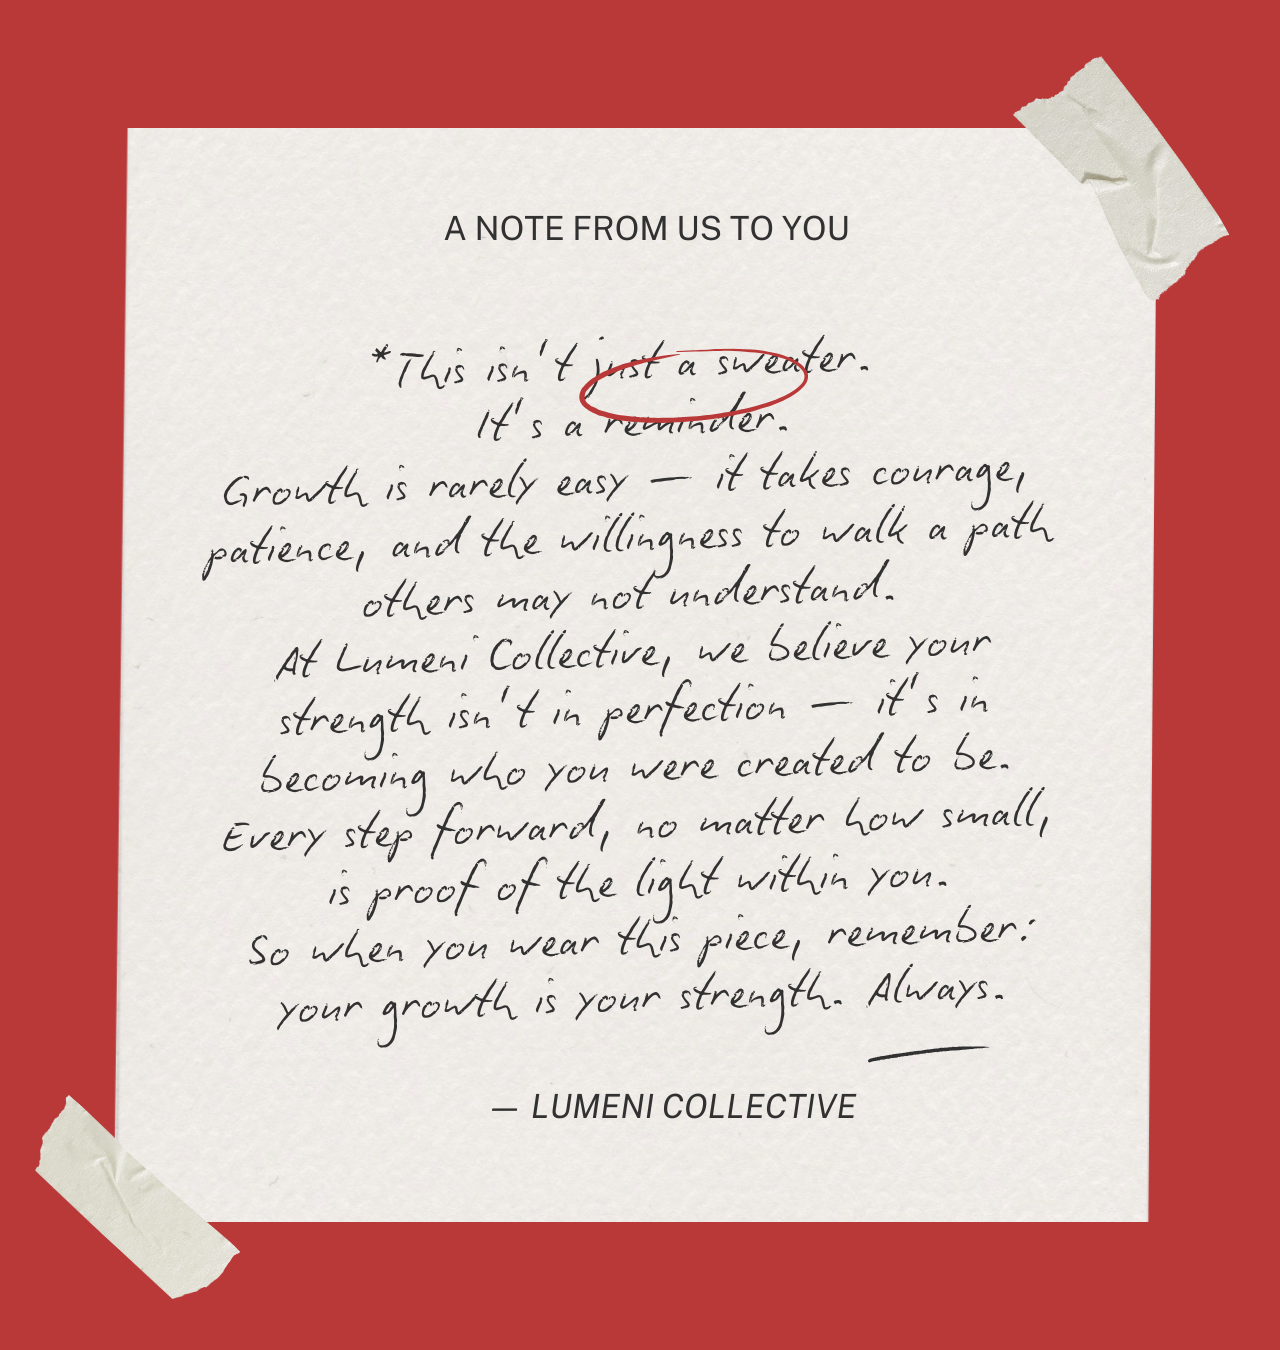 A NOTE FROM US TO YOU
*This isn't just a sweater.
It's a reminder.
Growth is rarely easy — it takes courage,
patience, and the willingness to walk a path
others may not understand.
At Lumeni Collective, we believe your
strength isn't in perfection — it's in
becoming who you were created to be.
Every step forward, no matter how small,
is proof of the light within you.
So when you wear this piece, remember:
your growth is your strength. Always.
— LUMENI COLLECTIVE